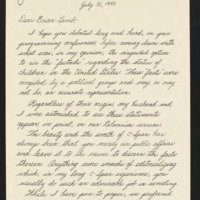 July 31, 1993
Dear Brian Lamb:
I hope you debated long and hard, in your
programming conferences, before coming down with
what was, in my opinion, the misguided option
to air the "factoids" regarding the status of
children in the United States. These facts were
compiled by a political group and may or may
not be, an accurate representation.
Regardless of their origin, my husband and
I were astonished to see these statements
appear, in print, on our television screen.
The beauty and the worth of C-Span has
always been that you merely air public affairs
and leave it to the viewer to discern the facts
therein. Anything more smacks of editorializing
which, in my long C-Span experience, you
usually do such an admirable job in avoiding.
While I have pen to paper, we